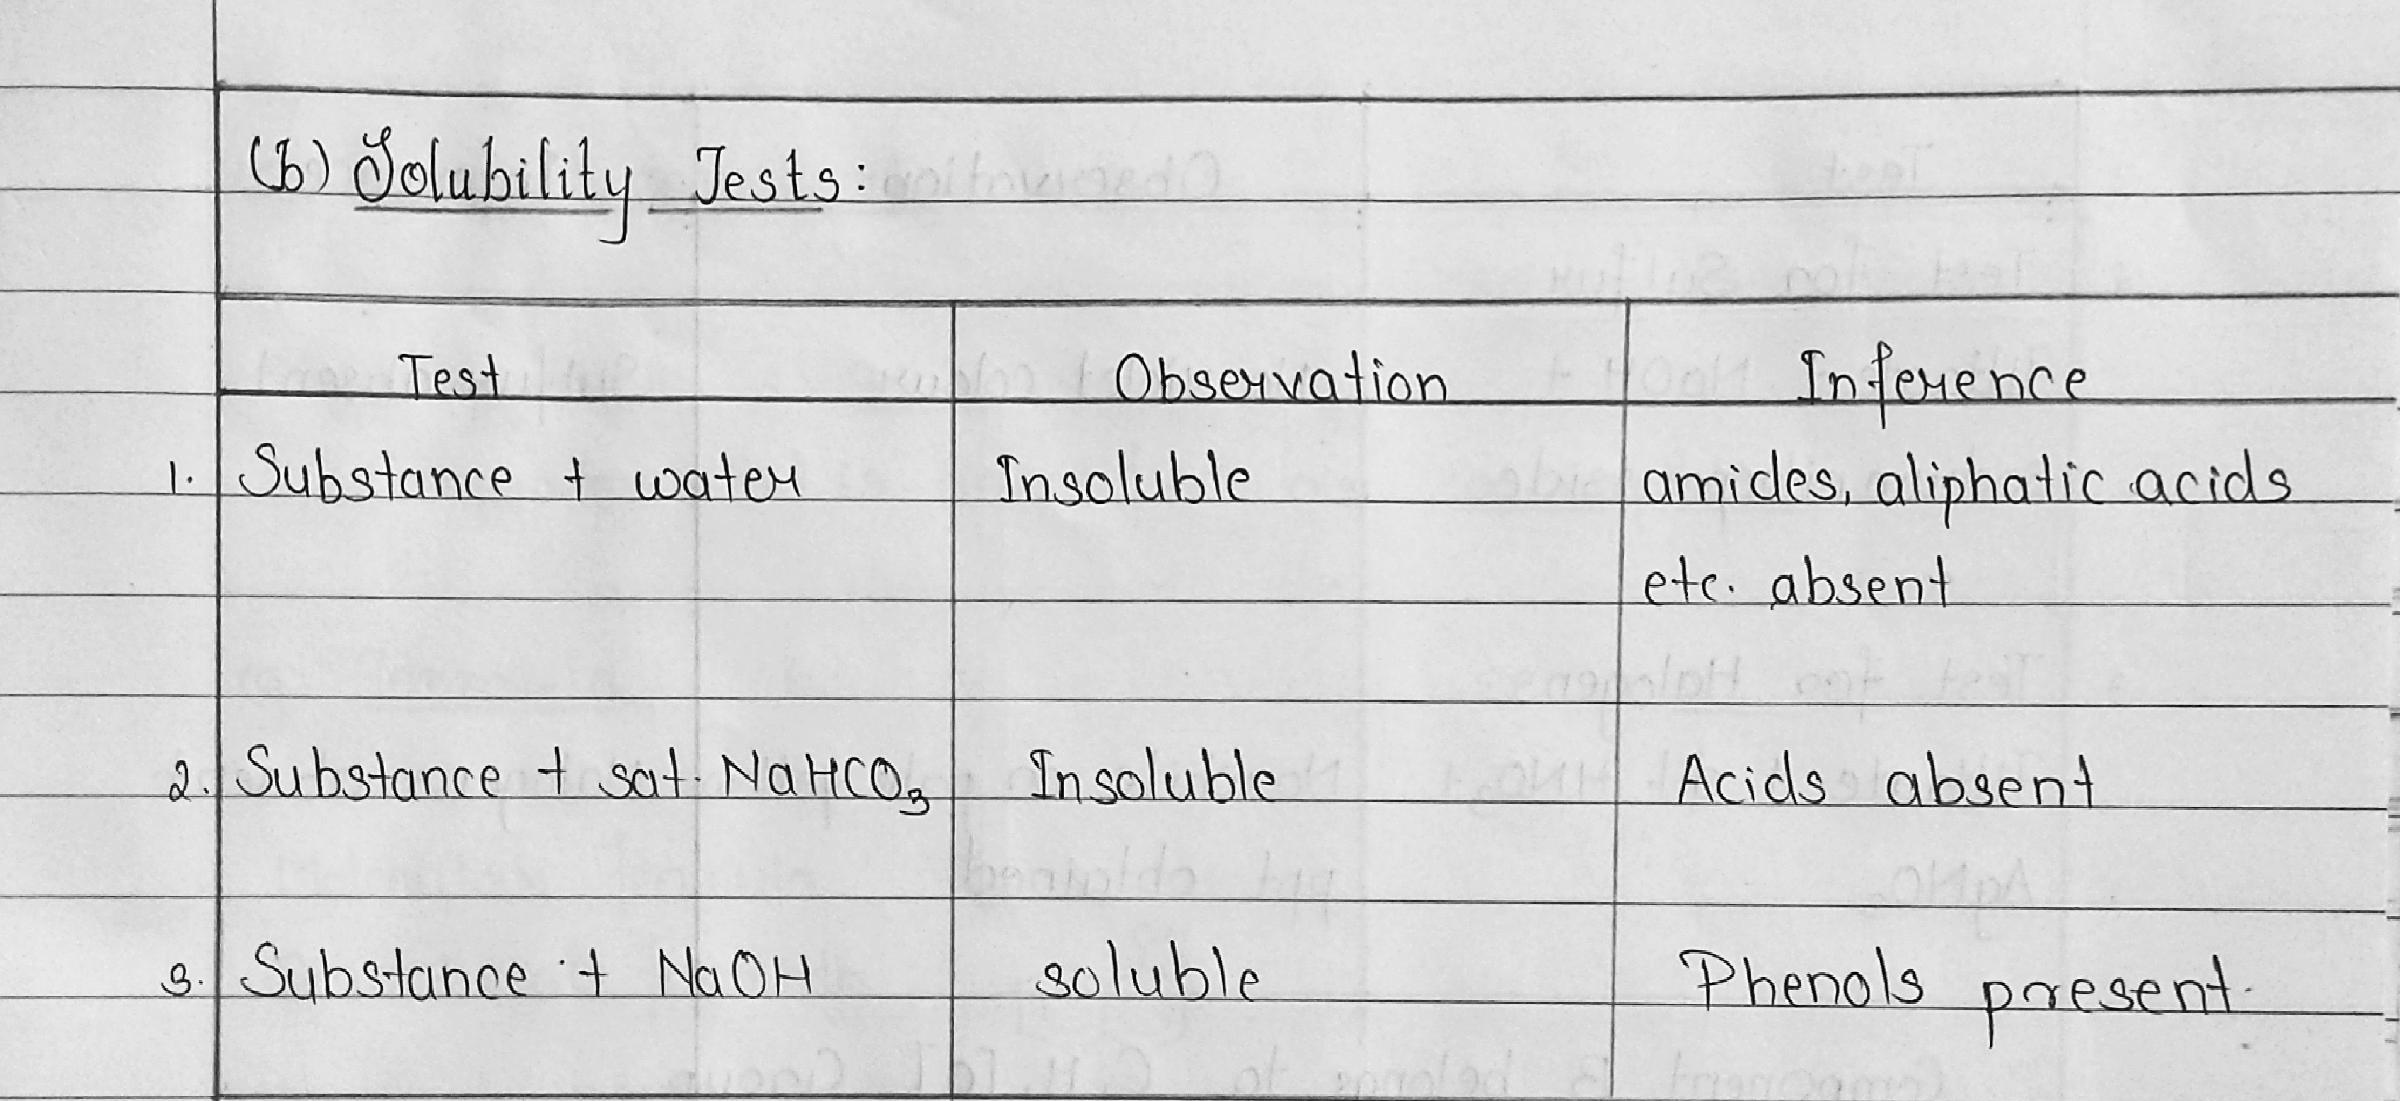 (b) Solubility Tests:
Test Observation Inference
1. Substance + water Insoluble amides, aliphatic acids
etc. absent
2. Substance + sat. NaHCO₃ Insoluble Acids absent
3. Substance + NaOH soluble Phenols present.